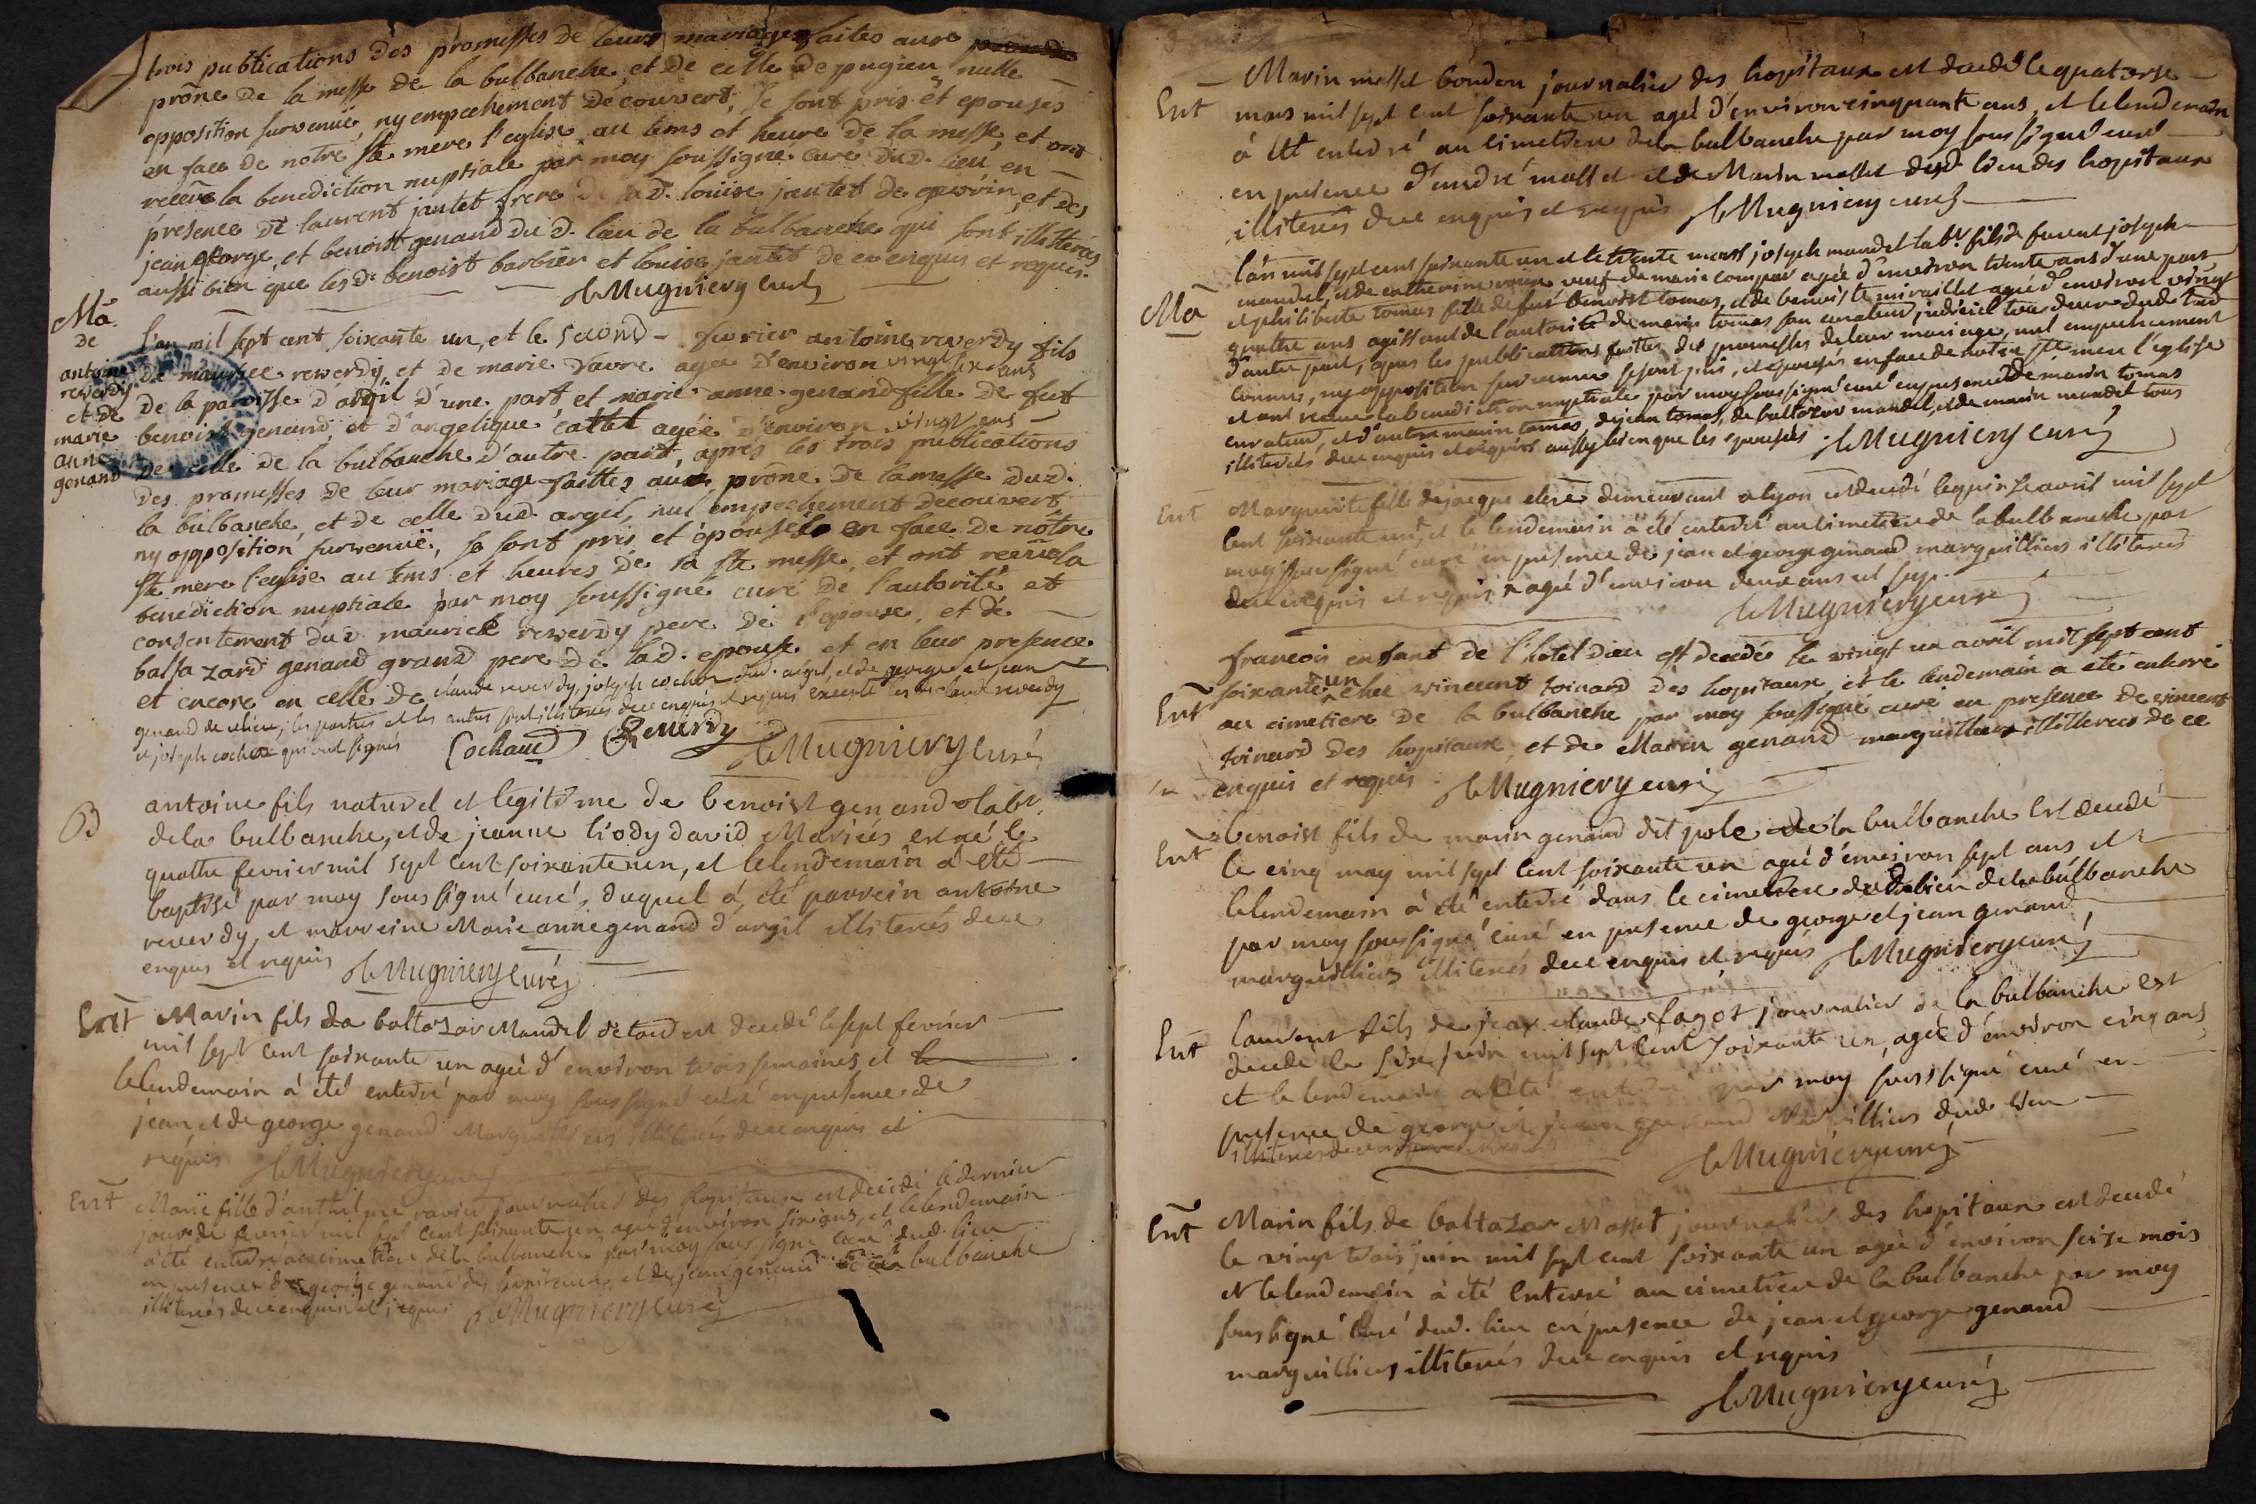 trois publications des promesses de leurs mariages faites aux
prône de la messe de la bulbanche et de celle de pugieu nulle
opposition survenüe, ny empechement découvert, se sont pris et epousés
en face de notre ste mere l'eglise au tems et heure de la messe, et ont
receu la benediction nuptiale par moy soussigné curé dud. lieu en
présence de laurent jantet frere de lad. loüise jantet de et des
jean george, et benoist genand dud. lieu de la bulbanche qui sont illitterés
aussi bien que lesd. benoist barbier et louise jantet de ce enquis et requis.
Mugniery curé
Ma
de
antoine
rewerdy
et de
marie
anne
genand
l'an mil sept cent soixante un, et le second fevrier antoine rewerdy fils
de maurice rewerdy et de marie davre agé d'environ vingt six ans
de la paroisse d'argil d'une part et marie anne genand fille de fut
benoist genand et d'angelique cattet agée d'environ vingt ans
de celle de la bulbanche d'autre part, aprés les trois publications
des promesses de leur mariage faittes aux prône de la messe dud.
la bulbanche et de celle dud. argil, nul empechement decouvert,
ny opposition survenüe, se sont pris et épousés en face de nôtre
ste mere l'eglise au tems et heures de la ste messe, et ont receu la
benediction nuptiale par moy soussigné curé de l'autorité et
consentement dud. maurice rewerdy pere de l'epoux, et de
baltazard genand grand pere de lad. epouse et en leur presence
et encore en celle de claude reverdy, joseph cochon dud. argil, et de george et jean
genand de , les parties et les autres sont illiterés de ce enquis et requis excepté les d. claude reverdy
et joseph cochon qui ont signés Cochaud Reverdy
Mugniery curé
B
antoine fils naturel et legitime de benoist genand labr.
de la bulbanche, et de jeanne liody david Mariés est né le
quattre fevrier mil sept cent soixante un, et le lendemain a été
baptisé par moy soussigné curé, duquel á été parrein antoine
reverdy, et marreine Marie anne genand d'argil illiterés de ce
enquis et requis Mugniery curé
Ent
Marin fils de baltazar Mandel est decedé le sept fevrier
mil sept cent soixante un agé d'environ trois semaines et le
le lendemain à été enterré par moy soussigné curé en presence de
jean et de george genand Marguilliers illiterés de ce enquis et
requis Mugniery curé
Ent
Marie fille d'anthelme ravier journalier des hopitaux est decedé le dernier
jour de fevrier mil sept cent soixante un agée d'environ six ans, et le lendemain
à été enterré au cimetiere de la bulbanche par moy soussigné curé dud. lieu
en presence de george genand des hopitaux, et de jean genand de la bulbanche
illiterés de ce enquis et requis Mugniery curé
Ent
Marin masset boudon journalier des hopitaux est decedé le quatorze
mars mil sept cent soixante un agé d'environ cinquante ans, et le lendemain
à été enterré au cimetiere de la bulbanche par moy soussigné curé
en presence d'andré masset et de Marin masset dud. lieu des hopitaux
illiterés de ce enquis et requis Mugniery curé
Ma
l'an mil sept cent soixante un et le trente mars joseph mandel labr. fils de furent joseph
mandel, et de catherine veuf de marie compar agé d'environ trente ans d'une part
et philiberte tomas fille de feu benoist tomas, et de benoiste miraillet agée d'environ vingt
quattre ans agissant de l'autorité de marin tomas son curateur
d'autre part, apres les publications faittes des promesses de leur mariage, nul empechement
connu, ny opposition survenue se sont pris, et epousés en face de notre ste mere l'eglise
et ont receu la benediction nuptiale par moy soussigné curé en presence de marin tomas
curateur, et d'autre marin tomas, de jean tomas, de baltazar mandel, et de marin mandel tous
illiterés de ce enquis et requis aussy bien que les epousés Mugniery curé
Ent
Marguerite fille de jacque demeurant a lyon est decedé le quinze avril mil sept
cent soixante un, et le lendemain à été enterré au cimetiere de la bulbanche par
moy soussigné curé en presence de jean et george genand marguilliers illiterés
de ce enquis et requis agé d'environ deux ans
Mugniery curé
Ent
francois enfant de l'hotel dieu est decedé le vingt un avril mil sept cent
soixante un chez vincent toinard des hopitaux, et le lendemain a eté enterré
au cimetiere de la bulbanche par moy soussigné curé en presence de vincent
toinard des hopitaux, et de Marin genand marguilliers illitterés de ce
enquis et requis Mugniery curé
Ent
benoist fils de marin genand dit pole de la bulbanche est decedé
le cinq may mil sept cent soixante un agé d'environ sept ans et
le lendemain à été enterré dans le cimetiere dud. lieu de la bulbanche
par moy soussigné curé en presence de george et jean genand
marguilliers illiterés de ce enquis et requis Mugniery curé
Ent
laurent fils de jean claude fagot journalier de la bulbanche est
decedé le six juin mil sept cent soixante un, agé d'environ cinq ans,
et le lendemain a été enterré par moy soussigné curé en
presence de george et jean genand Marguilliers dud. lieu
illiterés de ce
Mugniery curé
Ent
Marin fils de baltazar Masset journalier des hopitaux est decedé
le vingt trois juin mil sept cent soixante un agé d'environ seize mois
et le lendemain à été enterré au cimetiere de la bulbanche par moy
soussigné curé dud. lieu en presence de jean et george genand
marguilliers illiterés de ce enquis et requis
Mugniery curé